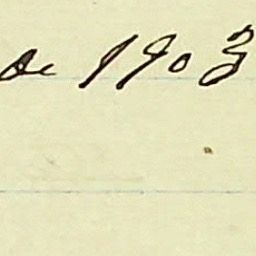 de 1903